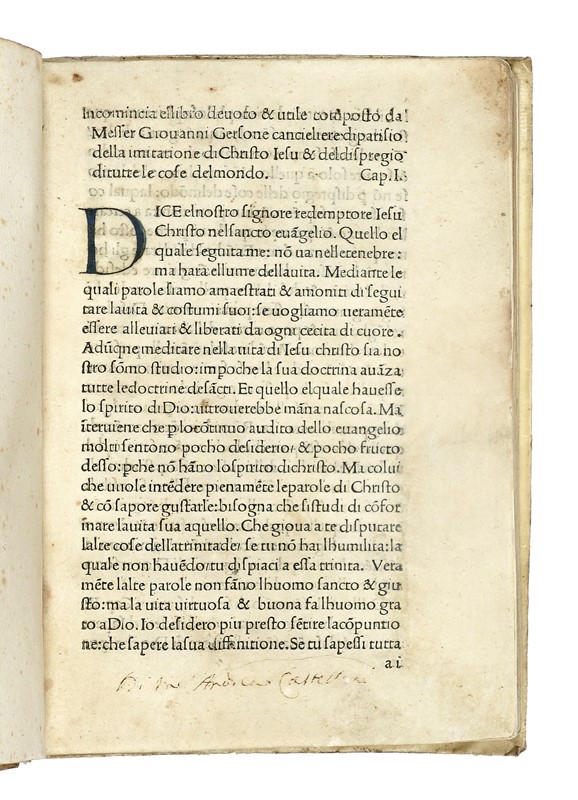 Incomincia ellibro deuoto & utile composto da
Messer Giouanni Gersone cancieliere di parisio
della imitatione di Christo Iesu & del dispregio
di tutte le cose del mondo. Cap. I.
DICE elnostro signore redemptore Iesu
Christo nel sancto euãgelio. Quello el
quale seguita me: nõ ua nelle tenebre:
ma hara ellume della uita. Mediante le
quali parole siamo amaestrati & amoniti di segui
tare la uita & costumi suoi: se uogliamo ueramẽte
essere alleuiati & liberati da ogni cecita di cuore.
Adũqne meditare nella uita di Iesu christo sia no
stro sõmo studio: impoche la sua doctrina auãza
tutte le doctrine de sãcti. Et quello elquale hauesse
lo spirito di Dio: ui trouerebbe mãna nascosa. Ma
ĩteruiene che p lo cõtinuo audito dello euangelio
molti sentono pocho desiderio/ & pocho fructo
desso: pche nõ hãno lo spirito di christo. Ma colui
che uuole intẽdere pienamẽte le parole di Christo
& cõ sapore gustarle: bisogna che si studi di cõfor
mare la uita sua a quello. Che gioua a te disputare
lalte cose della trinitade/ se tu nõ hai lhumilita: la
quale non hauẽdo/ tu dispiaci a essa trinita. Vera
mẽte lalte parole non fãno lhuomo sancto & giu
sto: ma la uita uirtuosa & buona fa lhuomo gra
to a Dio. Io desidero piu presto sẽtire la cõpuntio
ne: che sapere la sua diffinitione. Se tu sapessi tutta
a i
Di Andrea Castell